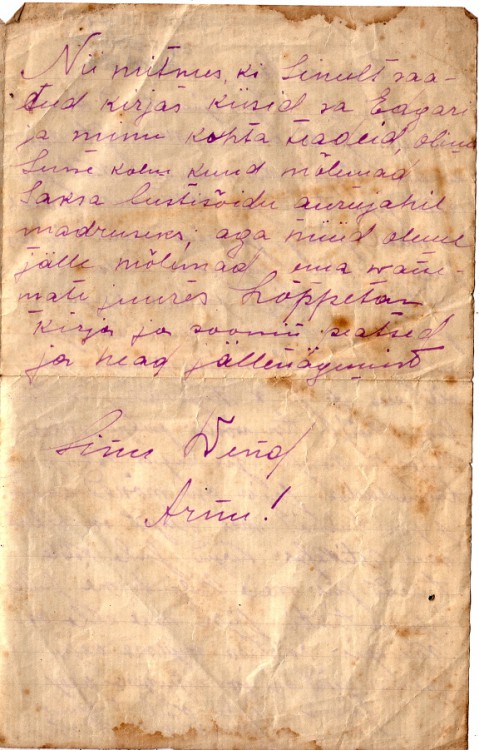 Nii mitmes, ki Sinult saa-
tud kirjas küsid sa Edgari
ja minu kohta teadeid, olime
kolm kuud mõlemad
Saksa lustisõidu aurujahil
madruseks, aga nüüd oleme
jälle mõlemad oma wane-
mate juures Lõppetan
kirja ja soovin
ja head jällenägemist
Sinu Wend